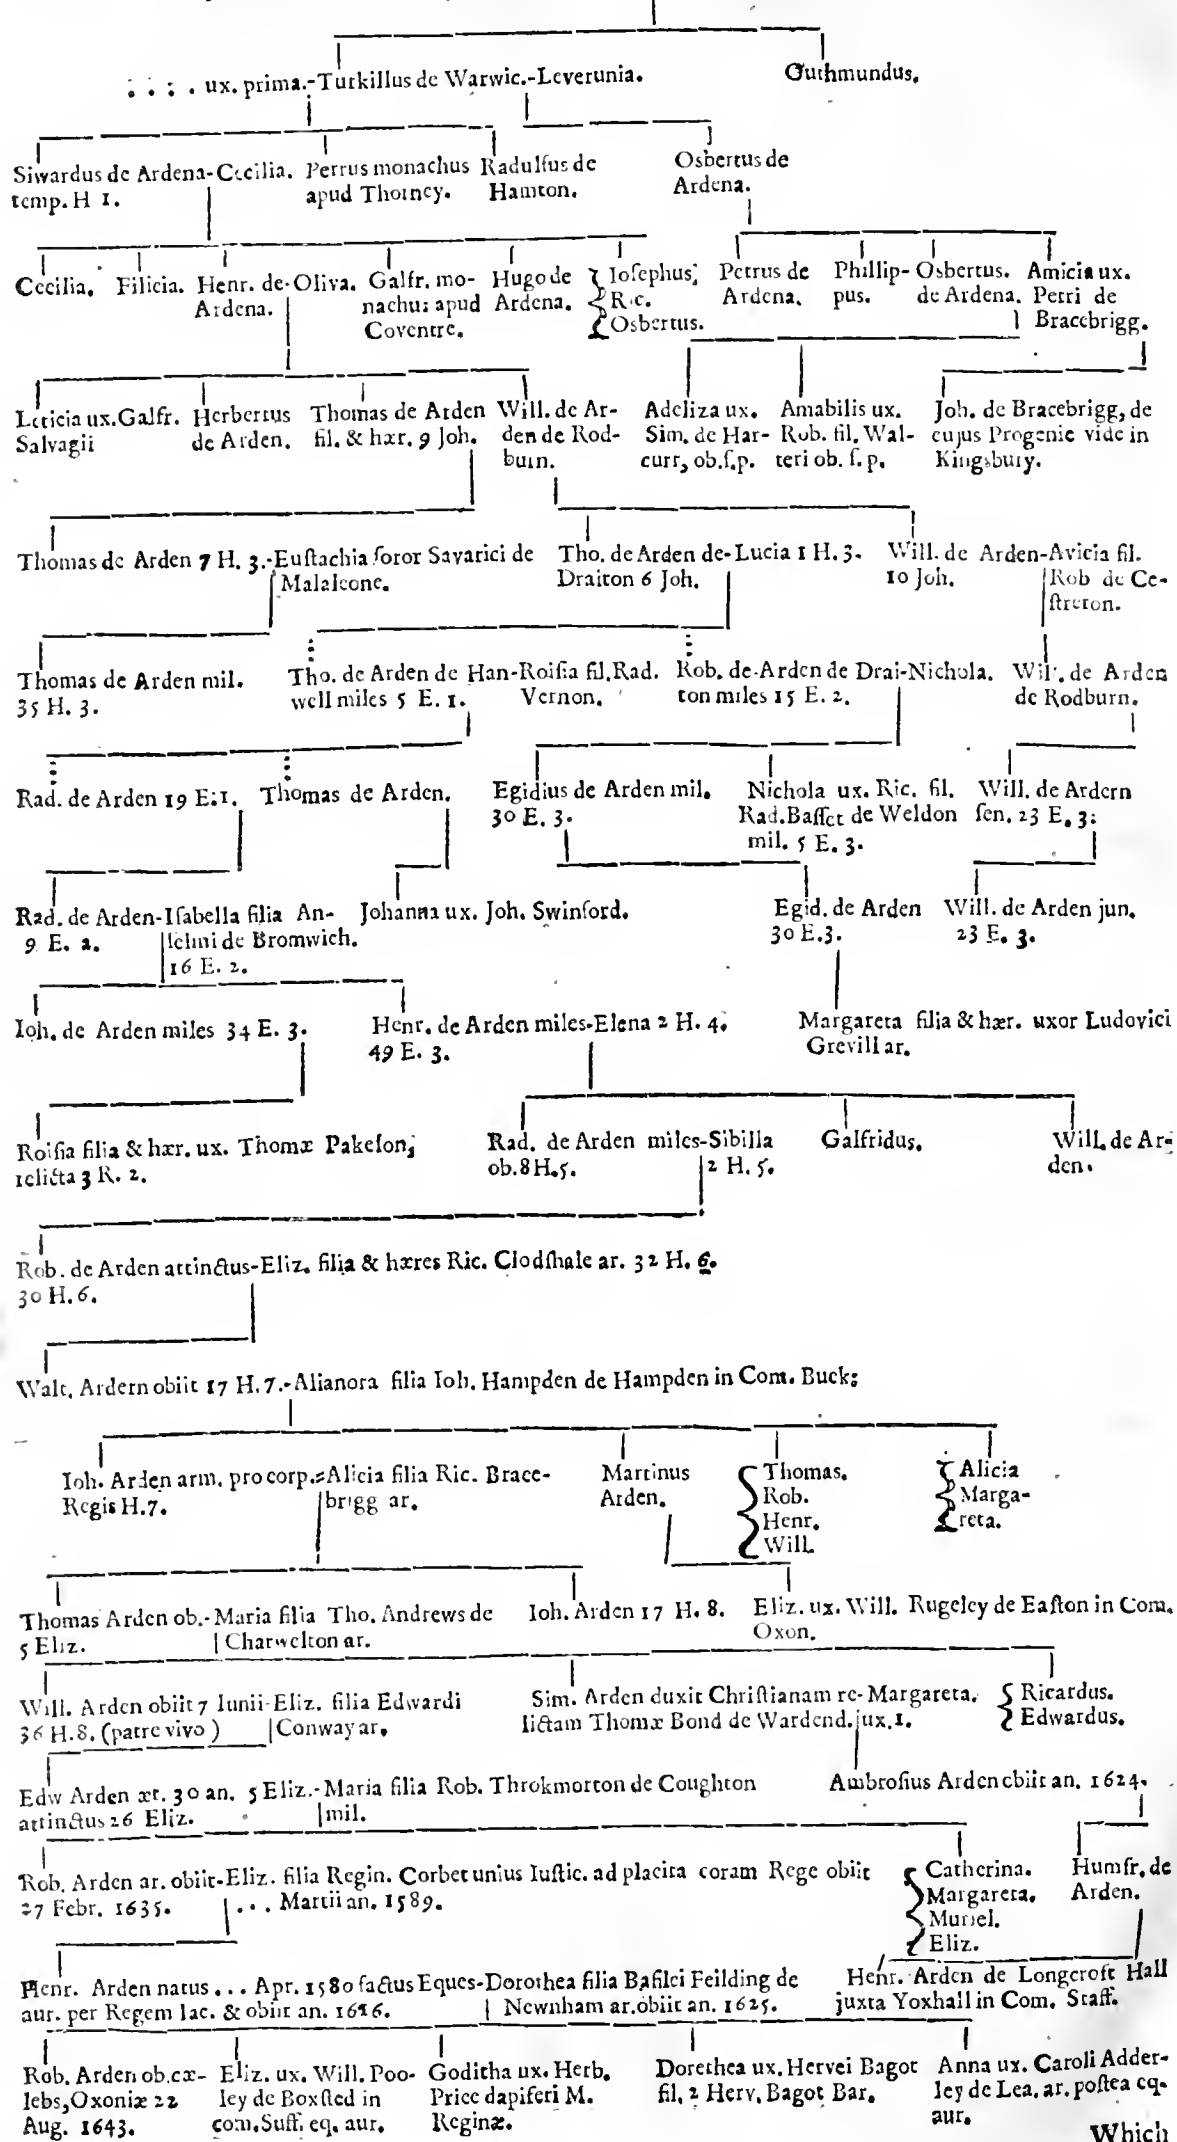 : : : . ux. prima.-Turkillus de Warwic.-Leverunia.
Guthmundus.
Siwardus de Ardena-Cecilia.
temp. H 1.
Petrus monachus
apud Thorney.
Radulfus de
Hamton.
Osbertus de
Ardena.
Cecilia.
Filicia.
Henr. de-Oliva.
Ardena.
Galfr. mo-
nachus apud
Coventre.
Hugo de
Ardena.
Iosephus,
Ric.
Osbertus.
Petrus de
Ardena.
Phillip-
pus.
Osbertus.
de Ardena.
Amicia ux.
Petri de
Bracebrigg.
Leticia ux. Galfr.
Salvagii
Herbertus
de Arden.
Thomas de Arden
fil. & hær. 9 Joh.
Will. de Ar-
den de Rod-
burn.
Adeliza ux.
Sim. de Har-
curr, ob.ſ.p.
Amabilis ux.
Rob. fil. Wal-
teri ob. ſ. p.
Joh. de Bracebrigg, de
cujus Progenie vide in
Kingsbury.
Thomas de Arden 7 H. 3.-Euſtachia ſoror Savarici de
Malaleone.
Tho. de Arden de-Lucia 1 H. 3.
Draiton 6 Joh.
Will. de Arden-Avicia fil.
10 Joh.
Rob de Ce-
ſtreton.
Thomas de Arden mil.
35 H. 3.
Tho. de Arden de Han-Roiſia fil. Rad.
well miles 5 E. 1.
Vernon.
Rob. de-Arden de Drai-Nichola.
ton miles 15 E. 2.
Will. de Arden
de Rodburn.
Rad. de Arden 19 E:1.
Thomas de Arden.
Egidius de Arden mil.
30 E. 3.
Nichola ux. Ric. fil.
Rad. Baſſet de Weldon
mil. 5 E. 3.
Will. de Ardern
ſen. 23 E. 3:
Rad. de Arden-Iſabella filia An-
9 E. 2.
ſelmi de Bromwich.
16 E. 2.
Johanna ux. Joh. Swinford.
Egid. de Arden
30 E.3.
Will. de Arden jun.
23 E. 3.
Ioh. de Arden miles 34 E. 3.
Henr. de Arden miles-Elena 2 H. 4.
49 E. 3.
Margareta filia & hær. uxor Ludovici
Grevill ar.
Roiſia filia & hær. ux. Thomæ Pakeſon,
relicta 3 R. 2.
Rad. de Arden miles-Sibilla
ob. 8 H. 5.
2 H. 5.
Galfridus.
Will. de Ar-
den.
Rob. de Arden attinctus-Eliz. filia & hæres Ric. Clodſhale ar. 32 H. 6.
30 H. 6.
Walt. Ardern obiit 17 H. 7.-Alianora filia Ioh. Hampden de Hampden in Com. Buck:
Ioh. Arden arm. pro corp.=Alicia filia Ric. Brace-
Regis H. 7.
brigg ar.
Martinus
Arden.
Thomas.
Rob.
Henr.
Will.
Alicia
Marga-
reta.
Thomas Arden ob.-Maria filia Tho. Andrews de
5 Eliz.
Charwelton ar.
Ioh. Arden 17 H. 8.
Eliz. ux. Will. Rugeley de Eaſton in Com.
Oxon.
Will. Arden obiit 7 Iunii-Eliz. filia Edwardi
36 H. 8. (patre vivo)
Conway ar.
Sim. Arden duxit Chriſtianam re-Margareta.
lictam Thomæ Bond de Wardend. ux. 1.
Ricardus.
Edwardus.
Edw Arden æt. 30 an. 5 Eliz.-Maria filia Rob. Throkmorton de Coughton
attinctus 26 Eliz.
mil.
Ambroſius Arden obiit an. 1624.
Rob. Arden ar. obiit-Eliz. filia Regin. Corbet unius Iuſtic. ad placita coram Rege obiit
27 Febr. 1635.
... Martii an. 1589.
Catherina.
Margareta.
Muriel.
Eliz.
Humfr. de
Arden.
Henr. Arden natus ... Apr. 1580 factus Eques-Dorothea filia Baſilei Feilding de
aur. per Regem Iac. & obiit an. 1616.
Newnham ar. obiit an. 1625.
Henr. Arden de Longcroft Hall
juxta Yoxhall in Com. Staff.
Rob. Arden ob. cæ-
lebs, Oxoniæ 22
Aug. 1643.
Eliz. ux. Will. Poo-
ley de Boxſted in
com. Suff. eq. aur.
Goditha ux. Herb.
Price dapiferi M.
Reginæ.
Dorethea ux. Hervei Bagot
fil. 2 Herv. Bagot Bar.
Anna ux. Caroli Adder-
ley de Lea, ar. poſtea eq.
aur.
Which